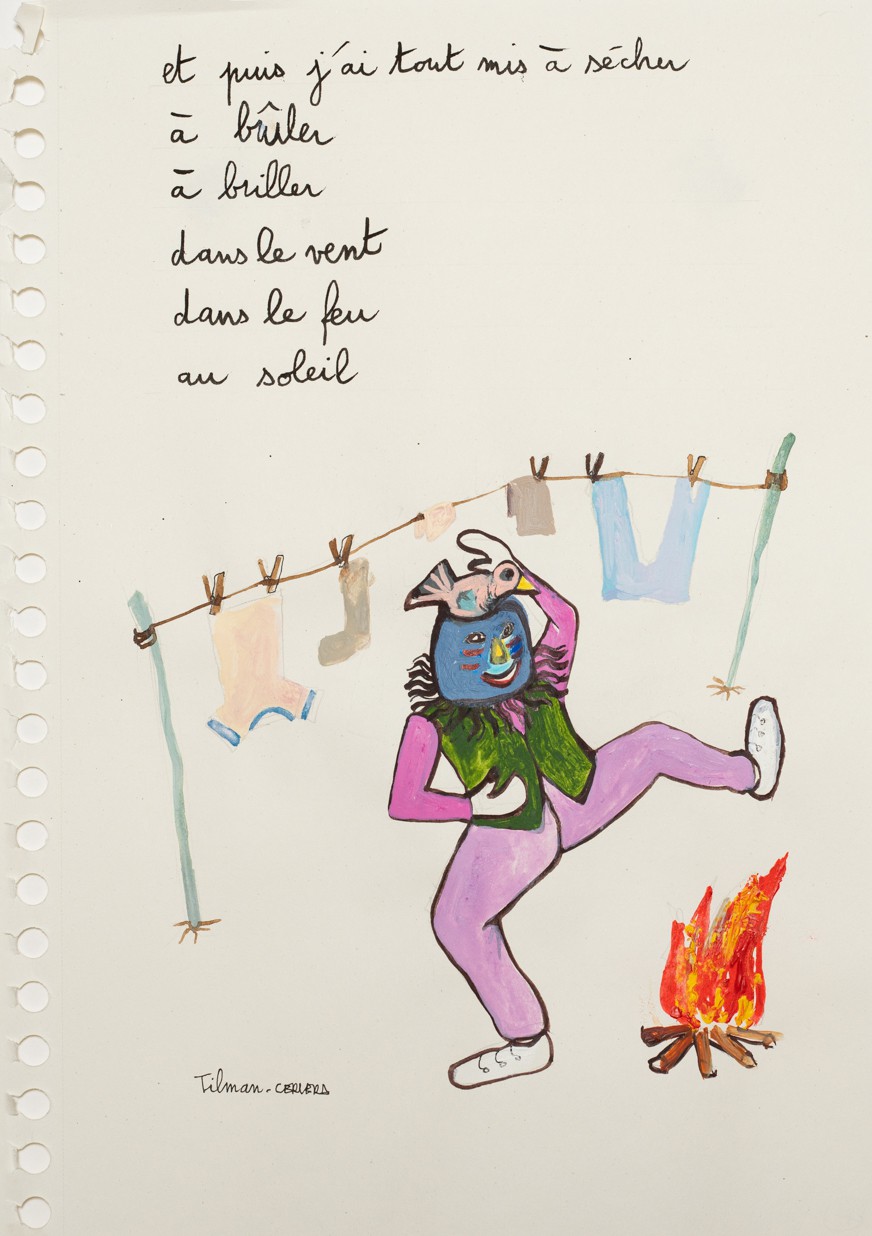 et puis j'ai tout mis à sécher
à brûler
à briller
dans le vent
dans le feu
au soleil
Tilman-